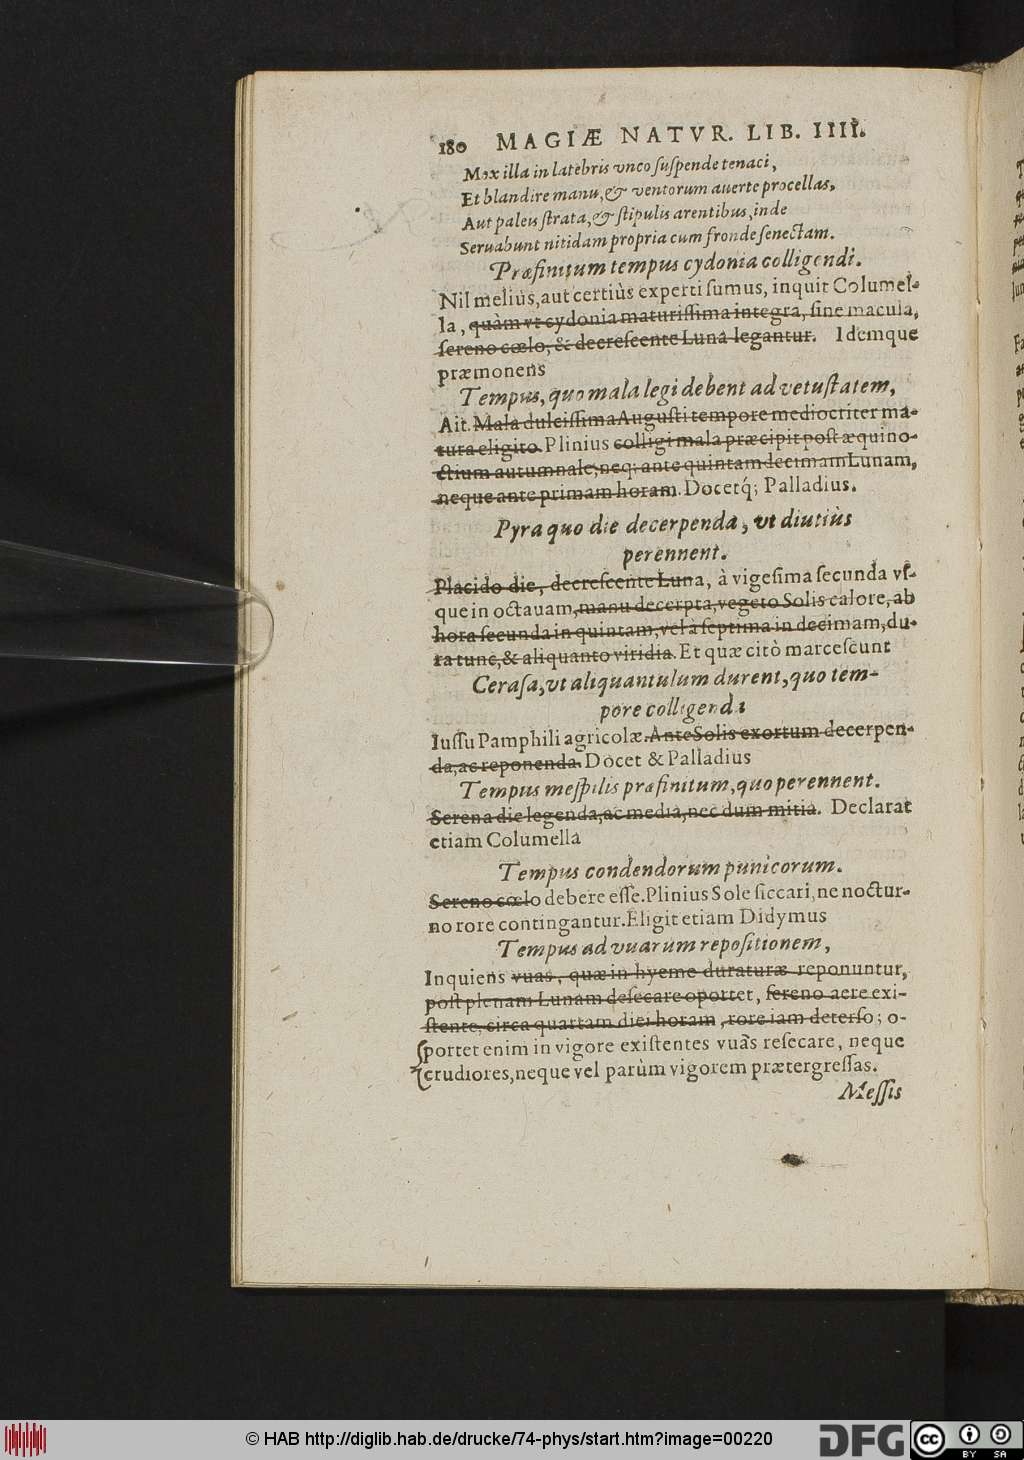 180 MAGIÆ NATVR. LIB. IIII.
Mox illa in latebris vnco ſuſpende tenaci,
Et blandire manu, & ventorum auerte procellas,
Aut paleis ſtrata, & ſtipulis arentibus, inde
Seruabunt nitidam propria cum fronde ſenectam.
Præfinitum tempus cydonia colligendi.
Nil meliùs, aut certiùs experti ſumus, inquit Columel-
la, quàm vt cydonia maturiſſima integra, ſine macula,
ſereno cœlo, & decreſcente Luna legantur. Idemque
præmonens
Tempus, quo mala legi debent ad vetuſtatem,
Ait. Mala dulciſſima Auguſti tempore mediocriter ma-
tura eligito. Plinius colligi mala præcipit poſt æquino-
ctium autumnale, neq; ante quintam decimam Lunam,
neque ante primam horam. Docetq́; Palladius.
Pyra quo die decerpenda, vt diutiùs
perennent.
Placido die, decreſcente Luna, à vigeſima ſecunda vſ-
que in octauam, manu decerpta, vegeto Solis calore, ab
hora ſecunda in quintam, vel à ſeptima in decimam, du-
ra tunc, & aliquanto viridia. Et quæ citò marceſcunt
Ceraſa, vt aliquantulum durent, quo tem-
pore colligendi
Iuſſu Pamphili agricolæ. Ante Solis exortum decerpen-
da, ac reponenda. Docet & Palladius
Tempus meſpilis præfinitum, quo perennent.
Serena die legenda, ac media, nec dum mitia. Declarat
etiam Columella
Tempus condendorum punicorum.
Sereno cœlo debere eſſe. Plinius Sole ſiccari, ne noctur-
no rore contingantur. Eligit etiam Didymus
Tempus ad vuarum repoſitionem,
Inquiens vuas, quæ in hyeme duraturæ reponuntur,
poſt plenam Lunam deſecare oportet, ſereno aere exi-
ſtente, circa quartam diei horam, rore iam deterſo; o-
portet enim in vigore exiſtentes vuas reſecare, neque
crudiores, neque vel parùm vigorem prætergreſſas.
Meſſis
© HAB http://diglib.hab.de/drucke/74-phys/start.htm?image=00220
DFG
cc
BY SA